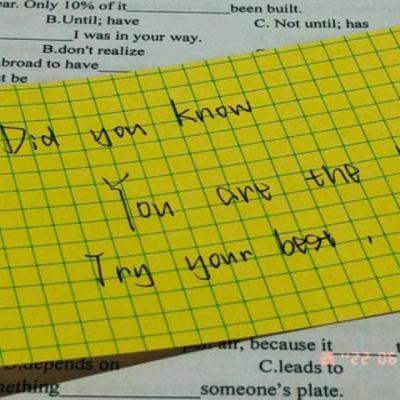 ar. Only 10% of it____________been built.
B.Until; have C. Not until; has
____________I was in your way.
B.don't realize C
broad to have
t be
Did you know
You are the
Try your best .
air, because it______t
D.depends on C.leads to
nething____________someone's plate.
'22 06